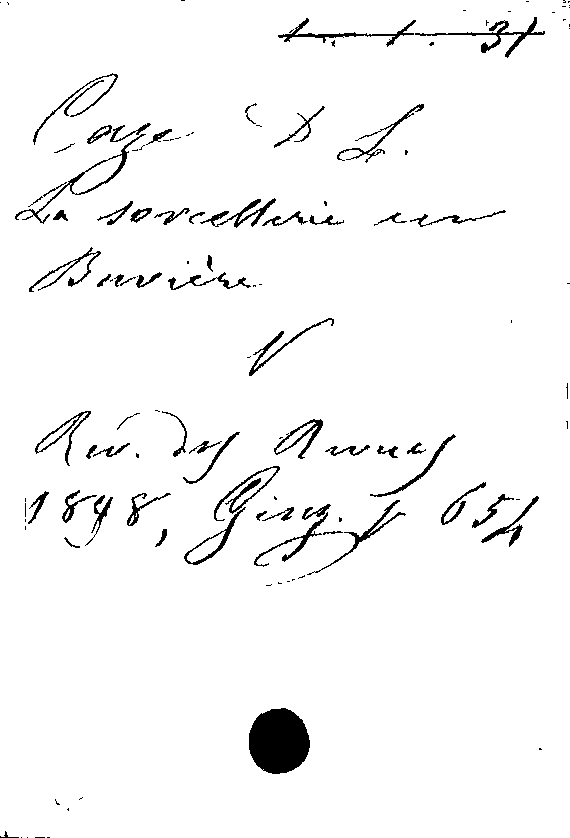 1. 1. 31
Caze D L.
La sorcellerie en
Bavière
V
Rev. des Revues
1898, p 654